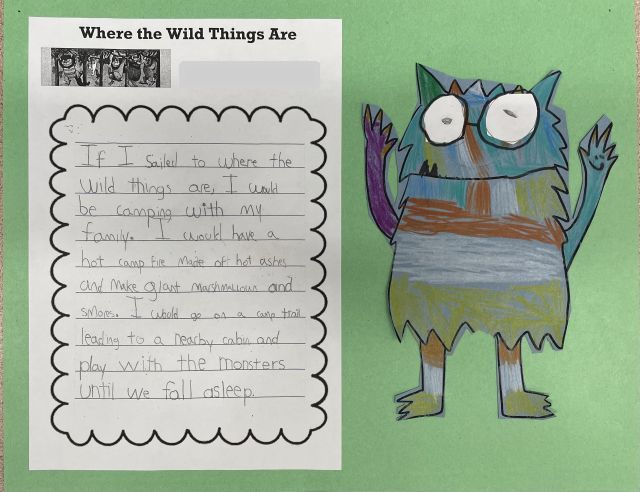 Where the Wild Things Are
If I Sailed to where the
wild things are, I would
be camping with my
family. I would have a
hot camp fire made off hot ashes
and make giant marshmallows and
smores. I would go on a camp trail
leading to a nearby cabin and
play with the monsters
until we fall asleep.